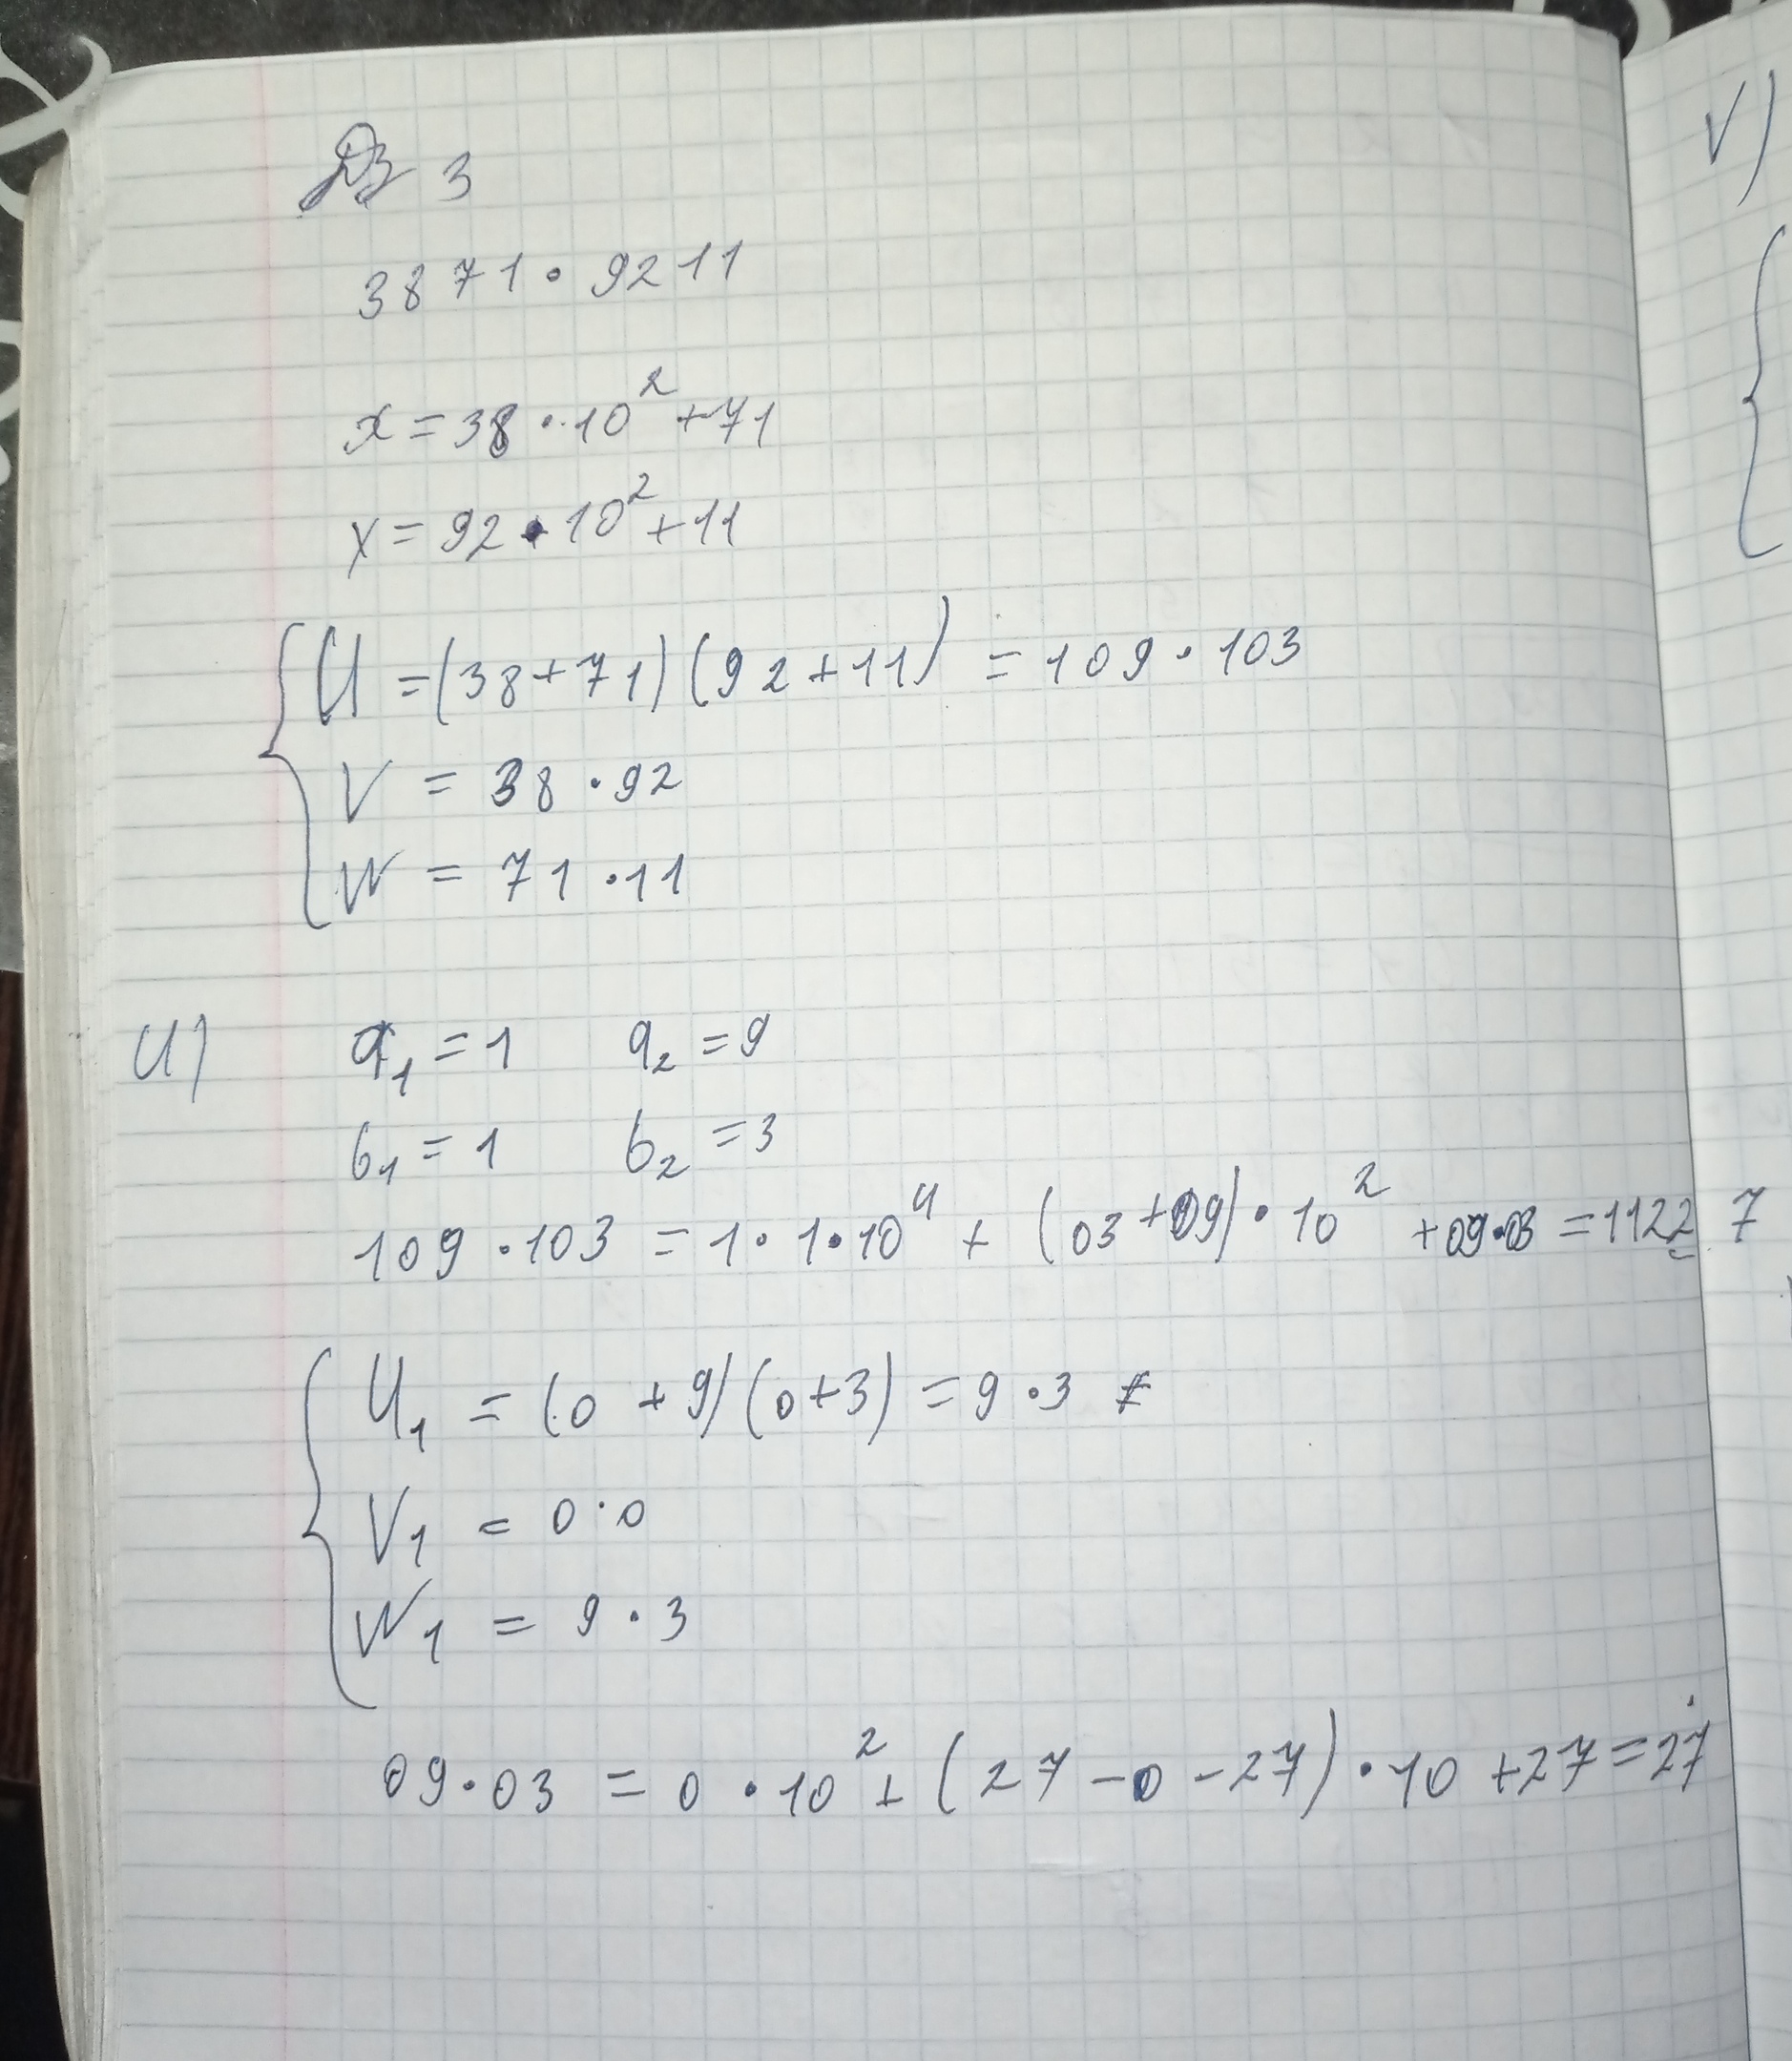 ДЗ 3
3871 · 9211
x = 38 · 10² + 71
y = 92 · 10² + 11
U = (38 + 71) (92 + 11) = 109 · 103
V = 38 · 92
W = 71 · 11
U) a₁ = 1 a₂ = 9
b₁ = 1 b₂ = 3
109 · 103 = 1 · 1 · 10⁴ + (03 + 09) · 10² + 09 · 03 = 11227
U₁ = (0 + 9) (0 + 3) = 9 · 3
V₁ = 0 · 0
W₁ = 9 · 3
09 · 03 = 0 · 10² + (27 - 0 - 27) · 10 + 27 = 27
V)